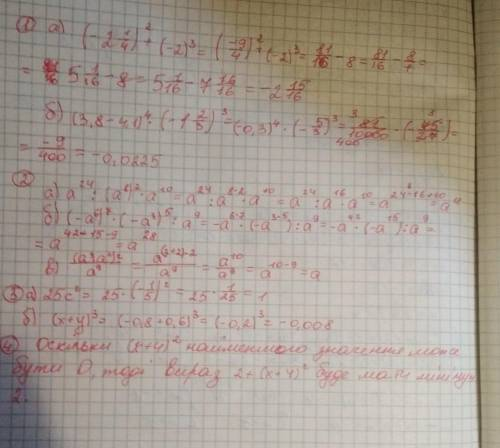 ① а) (-2 1/4)² + (-2)³ = (-9/4)² + (-2)³ = 81/16 - 8 = 81/16 - 8/1 =
= 5 1/16 - 8 = 5 1/16 - 7 16/16 = -2 15/16
б) (3,8 - 4,1)⁴ · (-1 2/3)³ = (0,3)⁴ · (-5/3)³ = 81/10000 ·
= -9/400 = -0,0225
② а) a²⁴ : (a⁸)² · a¹⁰ = a²⁴ : a⁸·² · a¹⁰ = a²⁴ : a¹⁶ · a¹⁰ = a²⁴⁻¹⁶⁺¹⁰ =
б)
= a⁴²⁺¹⁵⁻⁹ = a²⁸
в) = a⁽³⁺²⁾·²/a⁹ = a¹⁰/a⁹ = a¹⁰⁻⁹ = a
③ а) 25c² = 25 · (-1/5)² = 25 · 1/25 = 1
б) (x+y)³ = (-0,8 + 0,6)³ = (-0,2)³ = -0,008
④ Оскільки (x+4)² найменшого значення може
бути 0, тоді вираз 2+(x+4)² буде мати мінімум
2.